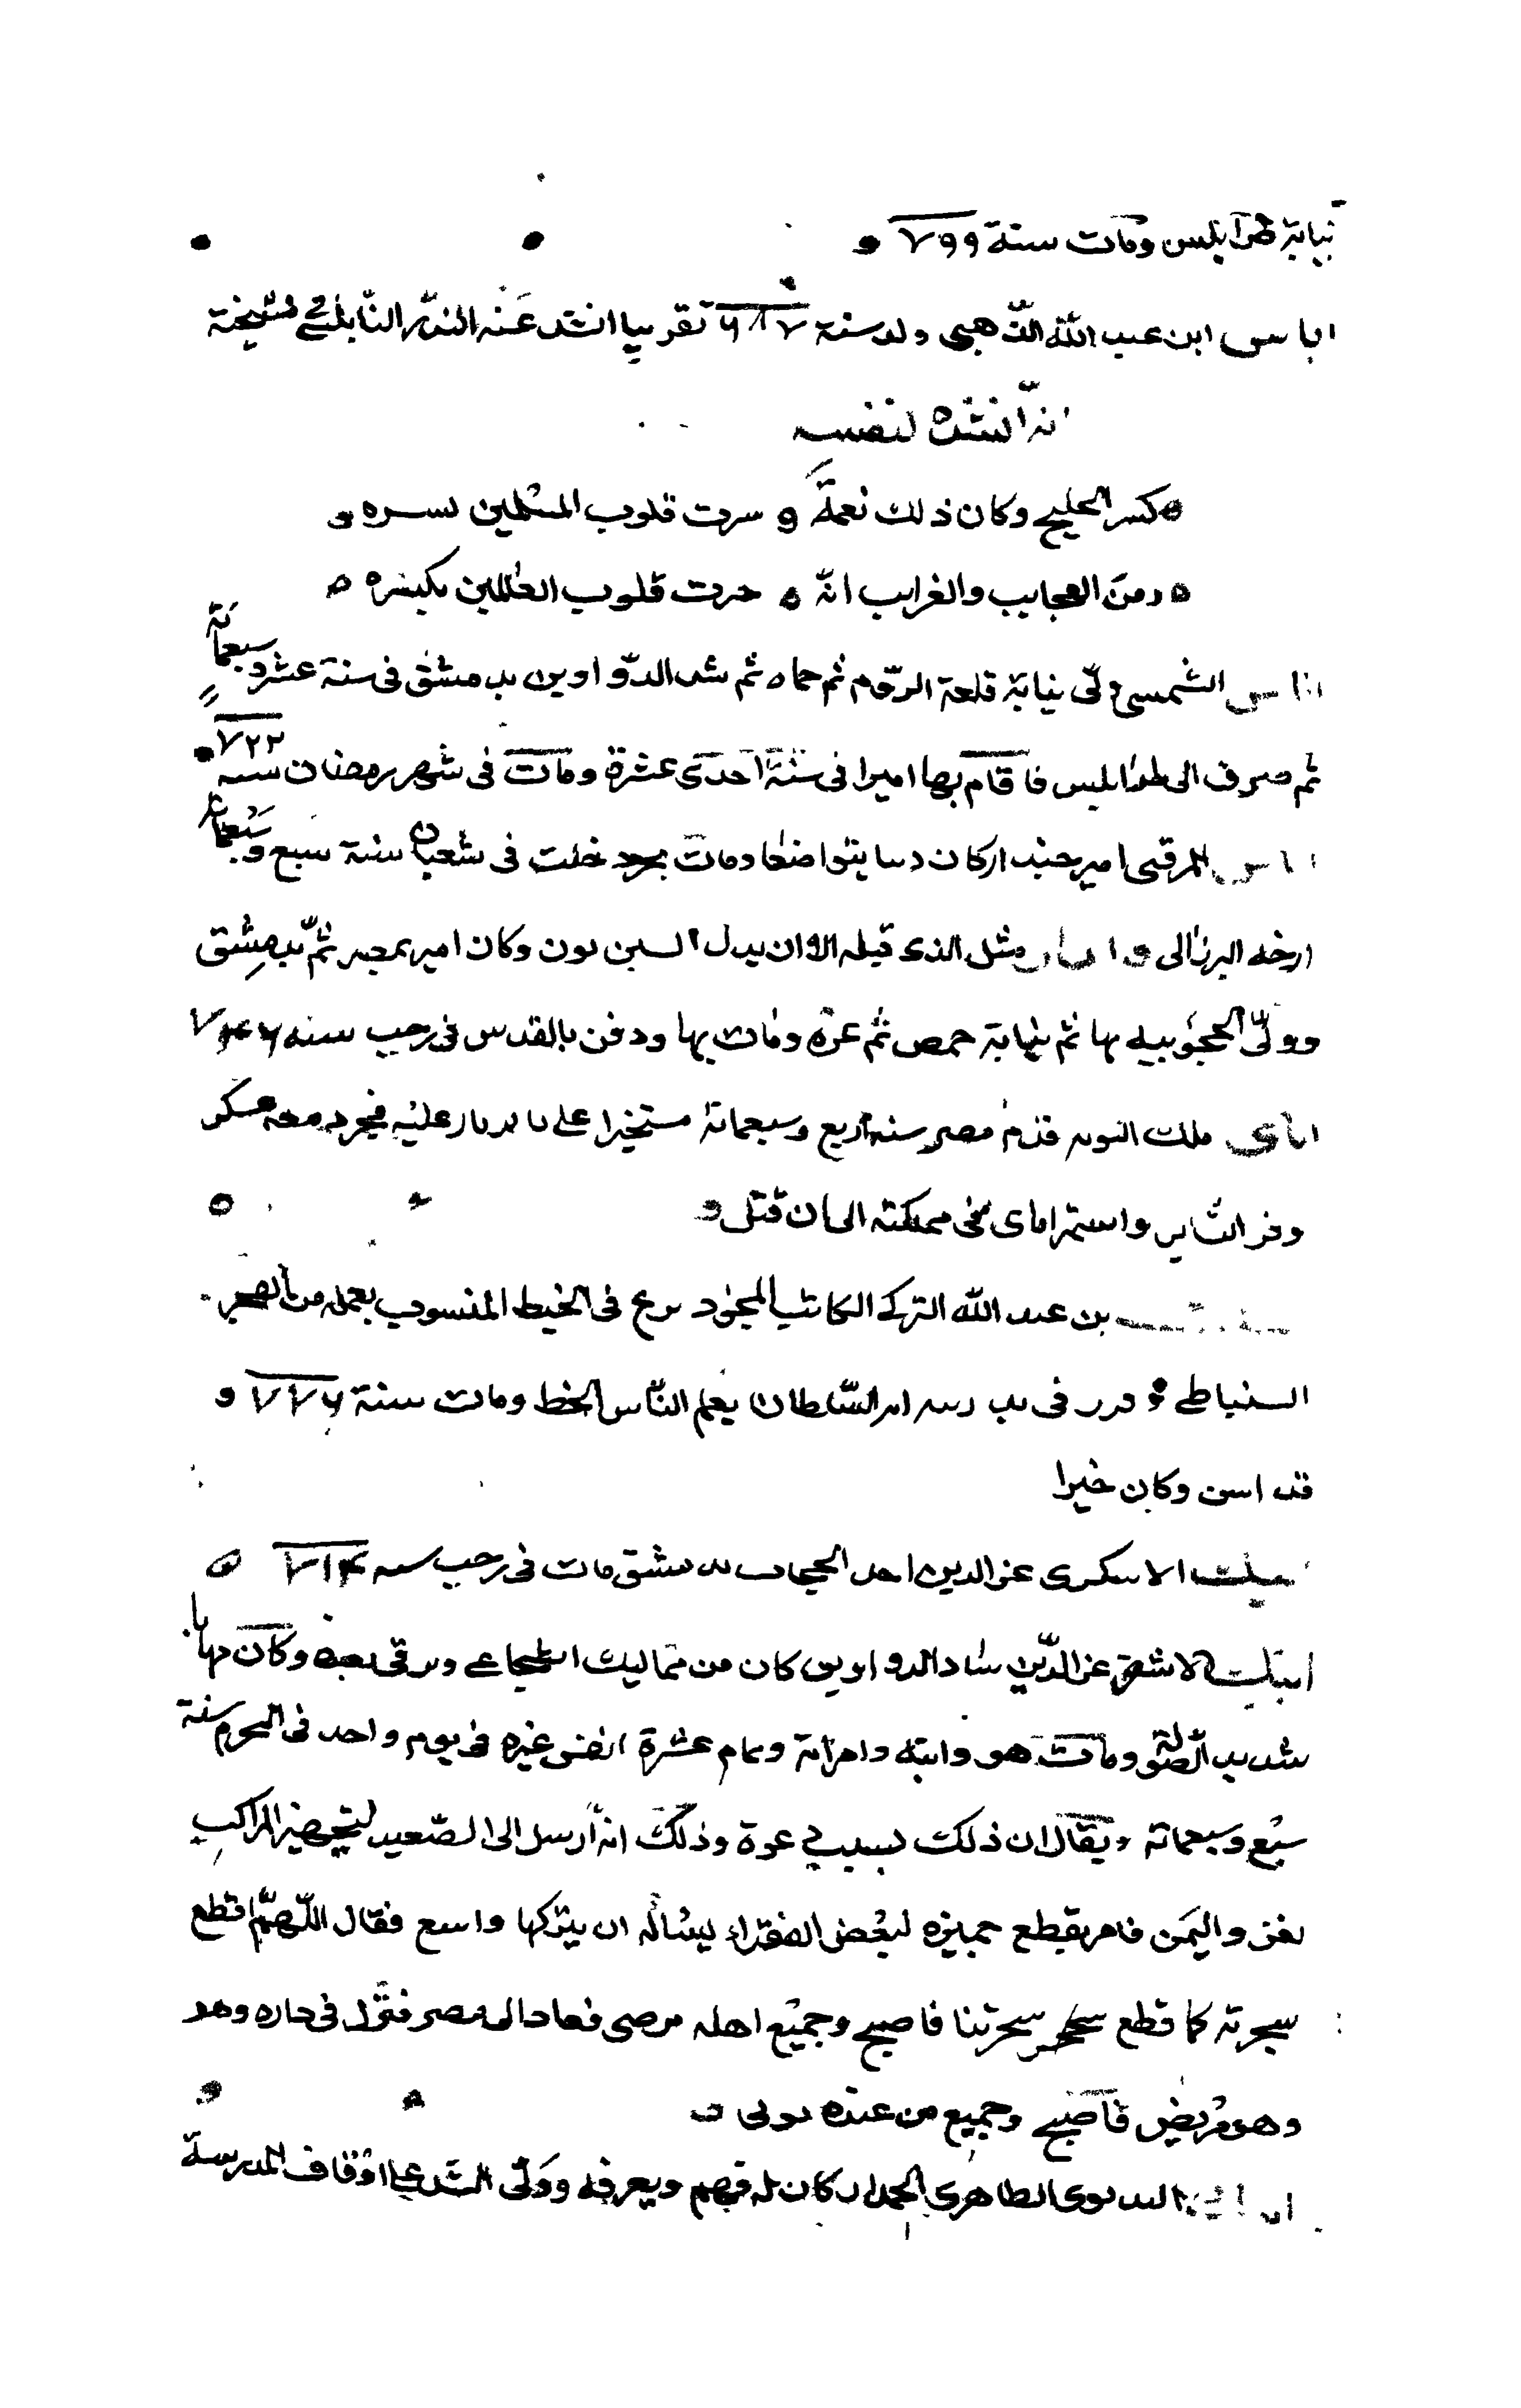 نيابة طرابلس ومات سنة ٧٩٩
اياس ابن عبد الله الذهبي ولد سنة ٦٨٧ تقريبا انشد عنه البدر النابلسي في مشيخته
انه انشده لنفسه
كسر الخليج وكان ذلك نعمة و سرت قلوب المسلمين بسره
ومن العجايب والغرايب انه ه جرت قلوب العالمين بكسره
اياس الشمسي ولى نيابة قلعة الروم ثم حماه ثم شد الدواوين بدمشق في سنة عشر وسبعمائة
ثم صرف الى طرابلس فاقام بها اميرا في سنة احدى عشرة ومات في شهر رمضان سنة ٧٢٢
المرقبي امير جندار كان دينا متواضعا ومات بحرد خلت في شعبان سنة سبع وسبعمائة
ارخه البرزالي مثل الذي قبله الا ان بدل السين نون وكان امير بمصر ثم بدمشق
وولى الحجوبيه بها ثم نيابة حمص ثم غزه ومات بها ودفن بالقدس في رجب سنه
اياى ملك النوبه قدم مصر سنة اربع وسبعمائة مستخيرا على ثار عليه فجرد معه عسكر
وفر الثاير واستمر اياى في مملكته الى ان قتل
بن عبد الله التركي الكاتب المجود برع في الخط المنسوب بعمله من
السنباطي وقرر في مدرسه ام السلطان يعلم الناس الخط ومات سنة ٧٧٦
قد اسن وكان خيرا
ايبك الاسكري عز الدين احد الحجاب بدمشق مات في رجب سنه ٧١٤
ايبك الاشقر عز الدين شاد الدواوين كان من مماليك الشجاعي ورقى بعده وكان مهابا
شديد الصولة ومات هو وابنه وامراته وتمام عشرة انفس غيره في يوم واحد في المحرم سنة
سبع وسبعمائة ويقال ان ذلك بسبب دعوة وذلك انه ارسل الى الصعيد لتجهيز المراكب
لغزو اليمن فامر بقطع جميزه لبعض الفقراء ليساله ان يتركها وامتنع فقال اللهم اقطع
شجرته كما قطع شجرتنا فاصبح وجميع اهله مرضى فعاد الى مصر فنزل في داره وهو
وهو مريض فاصبح وجميع من عنده موتى
البدنوي الظاهري الجمدار كان له فهم ومعرفه وولى الشد على اوقاف المدرسة